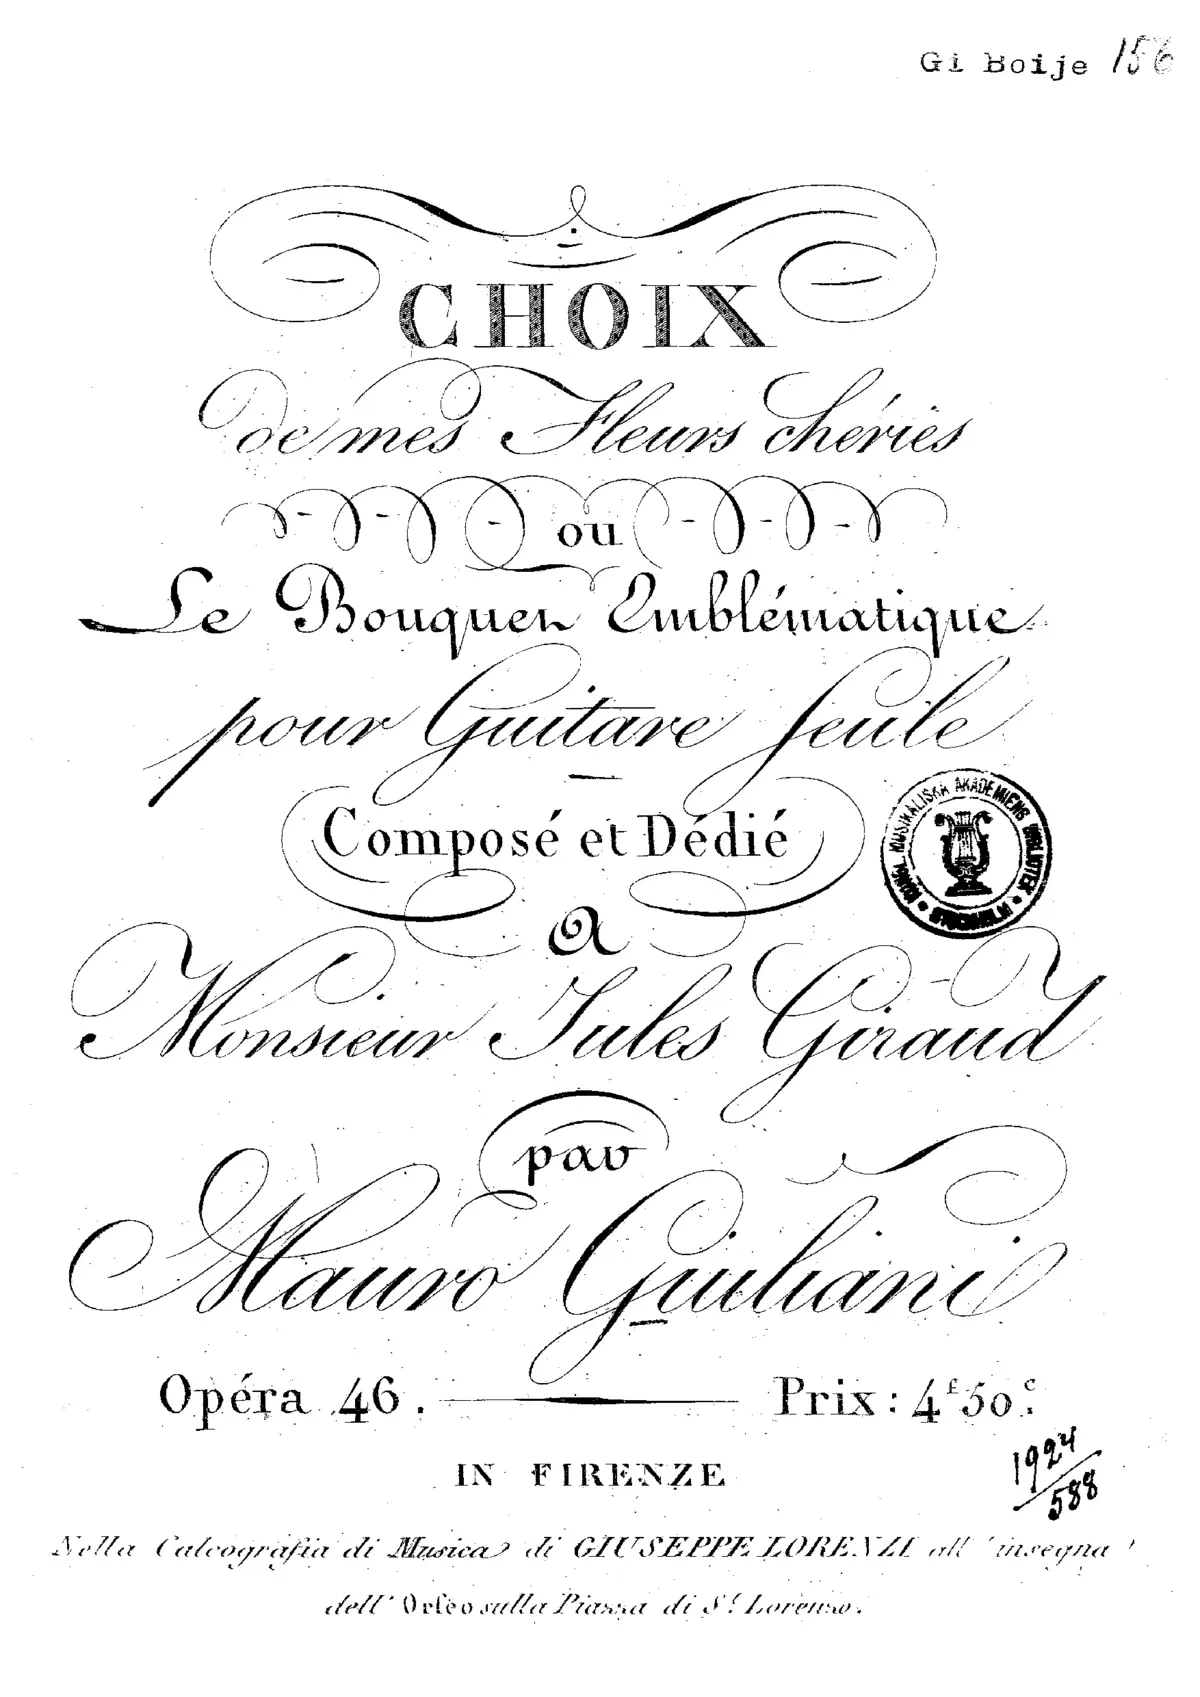 Gi Boije 156
CHOIX
de mes Fleurs chéries
ou
Le Bouquet Emblématique
pour Guitare Seule
Composé et Dédié
A
KONGL. MUSIKALISKA AKADEMIENS BIBLIOTEK
* STOCKHOLM *
Monsieur Jules Giraud
par
Mauro Giuliani
Opéra 46. Prix: 4.f 50.c
IN FIRENZE
1924/588
Nella Calcografia di Musica di GIUSEPPE LORENZI all'insegna
dell' Orfeo sulla Piazza di S.t Lorenzo.